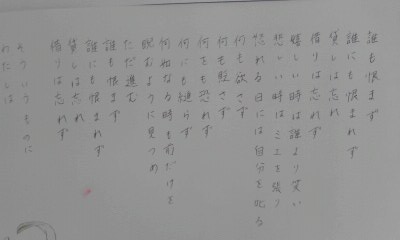 誰も恨まず
誰にも恨まれず
貸しは忘れ
借りは忘れず
嬉しい時は誰より笑い
悲しい時はミエを張り
怒れる日には自分を叱る
何も欲さず
何をも貶さず
何をも恐れず
何にも縋らず
何如なる時も前だけを
睨むように見つめ
ただ進む
誰も恨まず
誰にも恨まれず
貸しは忘れ
借りは忘れず
そういうものに
わたしは